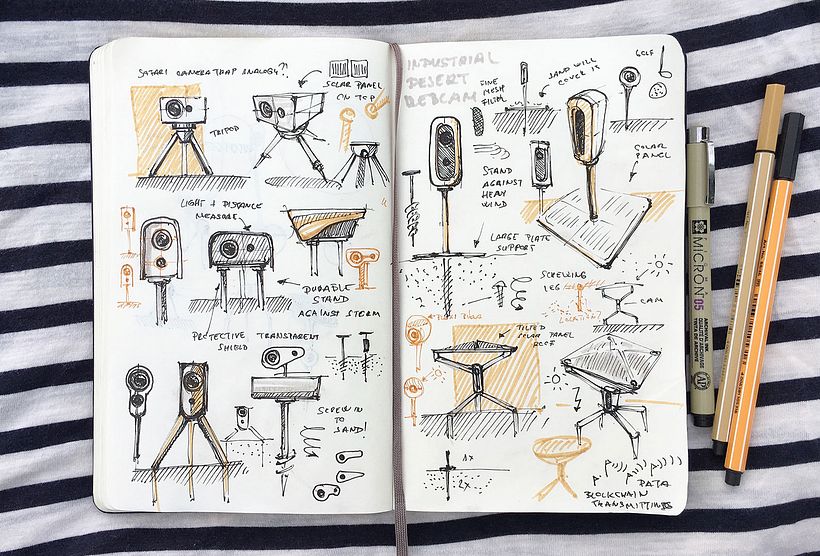 SAFARI CAMERA TRAP ANALOGY?!
SOLAR PANEL
ON TOP
TRIPOD
LIGHT + DISTANCE
MEASURE
DURABLE
STAND
AGAINST STORM
PROTECTIVE TRANSPARENT
SHIELD
SCREW IN
TO
SAND!
INDUSTRIAL
DESERT
WEBCAM
FINE
MESH
FILTER
SAND WILL
COVER IT
GOLF
SOLAR
PANEL
STAND
AGAINST
HEAVY
WIND
LARGE PLATE
SUPPORT
SCREWING
LEG
CAM
LOCATION?
TILTED
SOLAR PANEL
ROOF
1x
2x
DATA
BLOCKCHAIN
TRANSMITTING
MICRON 05
ARCHIVAL INK